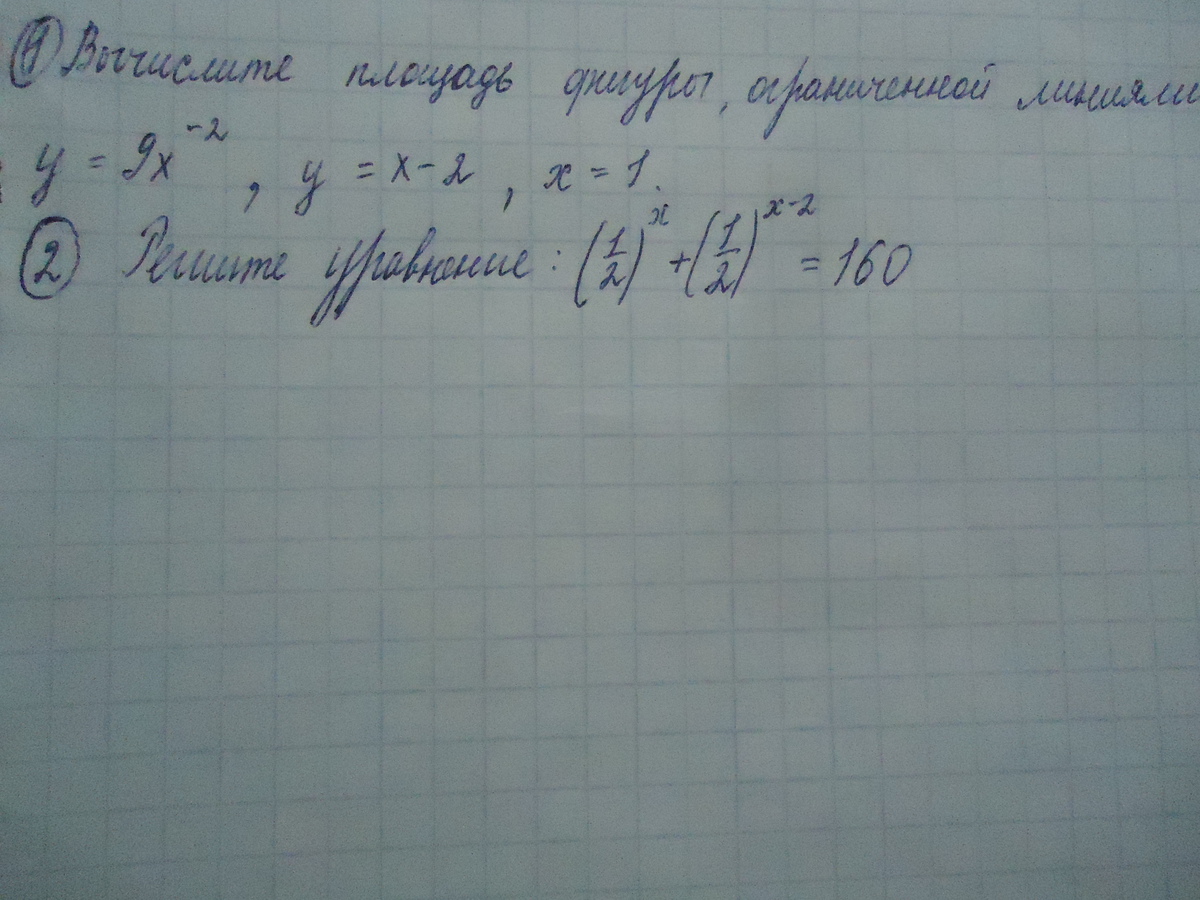 ① Вычислите площадь фигуры, ограниченной линиями
y = 9x⁻², y = x-2, x = 1.
② Решите уравнение: (1/2)^x + (1/2)^(x-2) = 160